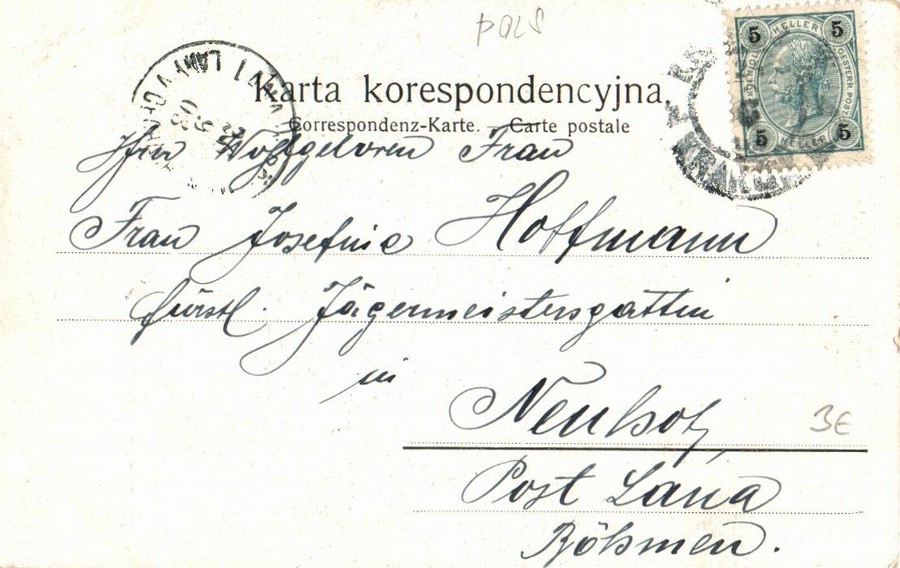 POLS
5 HELLER 5
5 HELLER 5
LANY V
Karta korespondencyjna.
Correspondenz-Karte. — Carte postale
Wohlgeboren Frau
Frau Josefine Hoffmann
fürstl. Jägermeistersgattin
in
Neuhof,
3€
Post Lana
Böhmen.